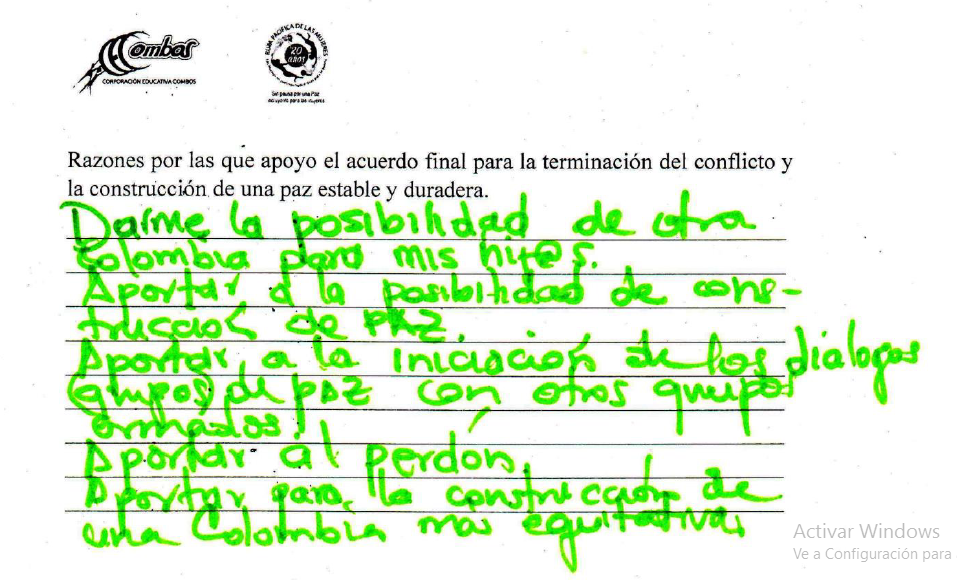 Combos
CORPORACIÓN EDUCATIVA COMBOS
RUTA PACÍFICA DE LAS MUJERES
20
AÑOS
Razones por las que apoyo el acuerdo final para la terminación del conflicto y
la construcción de una paz estable y duradera.
Darme la posibilidad de otra
Colombia para mis hij@s.
Aportar a la posibilidad de cons-
trucción de PAZ.
Aportar a la iniciación de los dialogos
(grupos) de paz con otros grupos
armados.
Aportar al perdón.
Aportar para la construcción de
una Colombia más equitativa.
Activar Windows
Ve a Configuración para